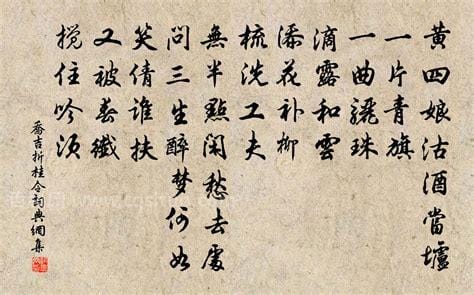 黄四娘沽酒當壚
一片青旗
一曲驪珠
滴露和雲
添花補柳
梳洗工夫
無半點閑愁去處
問三生醉夢何如
笑倩誰扶
又被春纖
攪住吟須
喬吉折桂令詞典網集